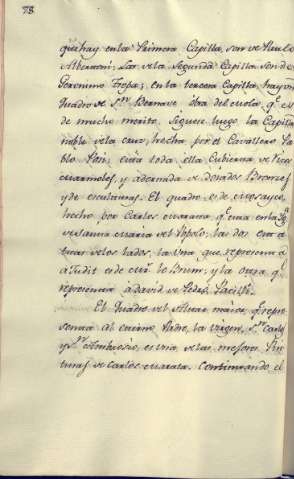 78
que hay en la Primera Capilla, son de Paulo
Albertoni; Las de la Segunda Capilla son de
Geronimo Trepa; en la tercera Capilla, hay un
Quadro de Sn. Bernave, obra del q. es
de mucho merito. Siguese luego la Capilla
noble de la cruz, hecha por el Cavallero Pa
blo Pon; esta toda ella Cubierta de ricos
marmoles, y adornada de dorados Broncez
y de esculturas. El quadro es de
hecho por Carlos Marata, q. en la Yg.
de Santa Maria del Popolo; las dos
de los lados, la una que representa a
a Judit es de le Brum; y la otra q.
representa à David de Pedro
El Quadro del Altar maior, q. repre
senta al eterno Padre, la Virgen, Sn. Carlos
y Sn. Ambrosio, es una de las mejores Pin
turas de Carlos Marata. Continuando el